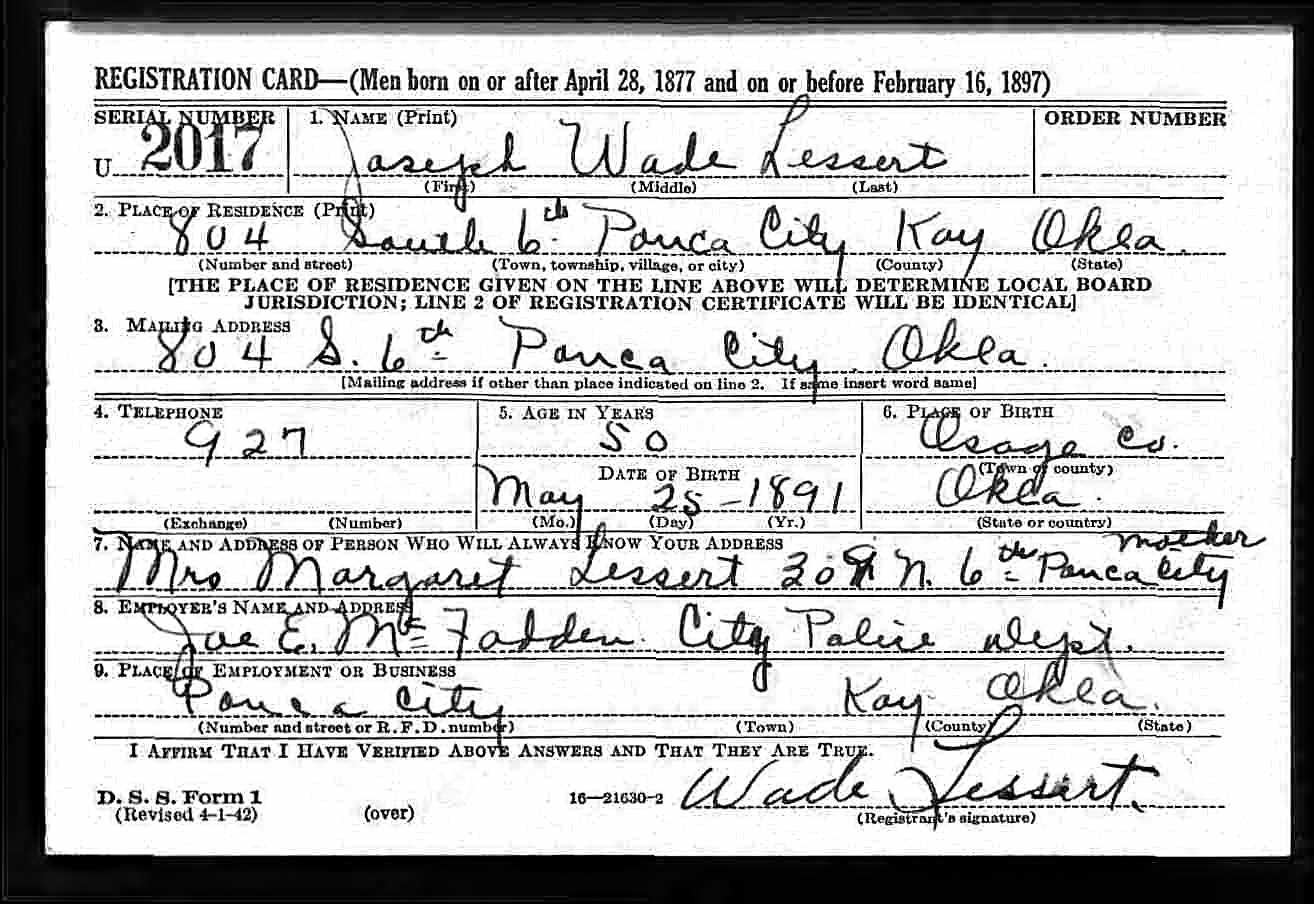 REGISTRATION CARD—(Men born on or after April 28, 1877 and on or before February 16, 1897)
SERIAL NUMBER 1. NAME (Print) ORDER NUMBER
U 2017 Joseph Wade Lessert
(First) (Middle) (Last)
2. PLACE OF RESIDENCE (Print)
804 South 6th Ponca City Kay Okla.
(Number and street) (Town, township, village, or city) (County) (State)
[THE PLACE OF RESIDENCE GIVEN ON THE LINE ABOVE WILL DETERMINE LOCAL BOARD
JURISDICTION; LINE 2 OF REGISTRATION CERTIFICATE WILL BE IDENTICAL]
3. MAILING ADDRESS
804 S. 6th Ponca City Okla.
[Mailing address if other than place indicated on line 2. If same insert word same]
4. TELEPHONE 5. AGE IN YEARS 6. PLACE OF BIRTH
927 50 Osage Co.
DATE OF BIRTH (Town or county)
May 25-1891 Okla.
(Exchange) (Number) (Mo.) (Day) (Yr.) (State or country)
7. NAME AND ADDRESS OF PERSON WHO WILL ALWAYS KNOW YOUR ADDRESS mother
Mrs Margaret Lessert N. 6th Ponca City
8. EMPLOYER'S NAME AND ADDRESS
Joe E. Mc Fadden. City Police Dept.
9. PLACE OF EMPLOYMENT OR BUSINESS
Ponca City Kay Okla.
(Number and street or R. F. D. number) (Town) (County) (State)
I AFFIRM THAT I HAVE VERIFIED ABOVE ANSWERS AND THAT THEY ARE TRUE.
Wade Lessert.
D. S. S. Form 1
(Revised 4-1-42) (over) 16—21630-2 (Registrant's signature)